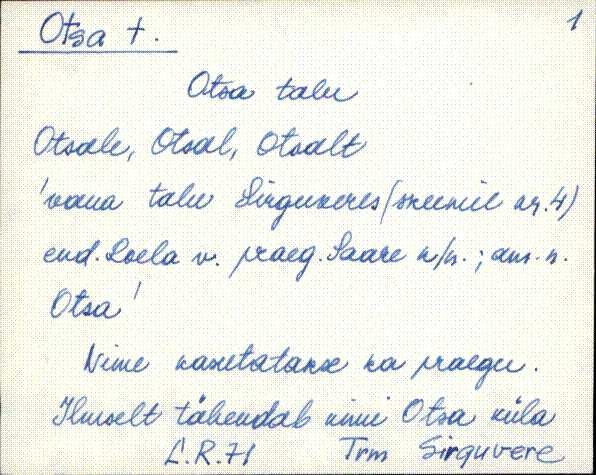 Otsa t. 1
Otsa talu
Otsale, Otsal, Otsalt
'vana talu Sirguveres (skeemil nr. 4)
end. Roela v. praeg. Saare k/n.; am. n.
Otsa'
Nime kasutatakse ka praegu.
Ilmselt tähendab nimi Otsa küla
L.R.71 Trm Sirguvere